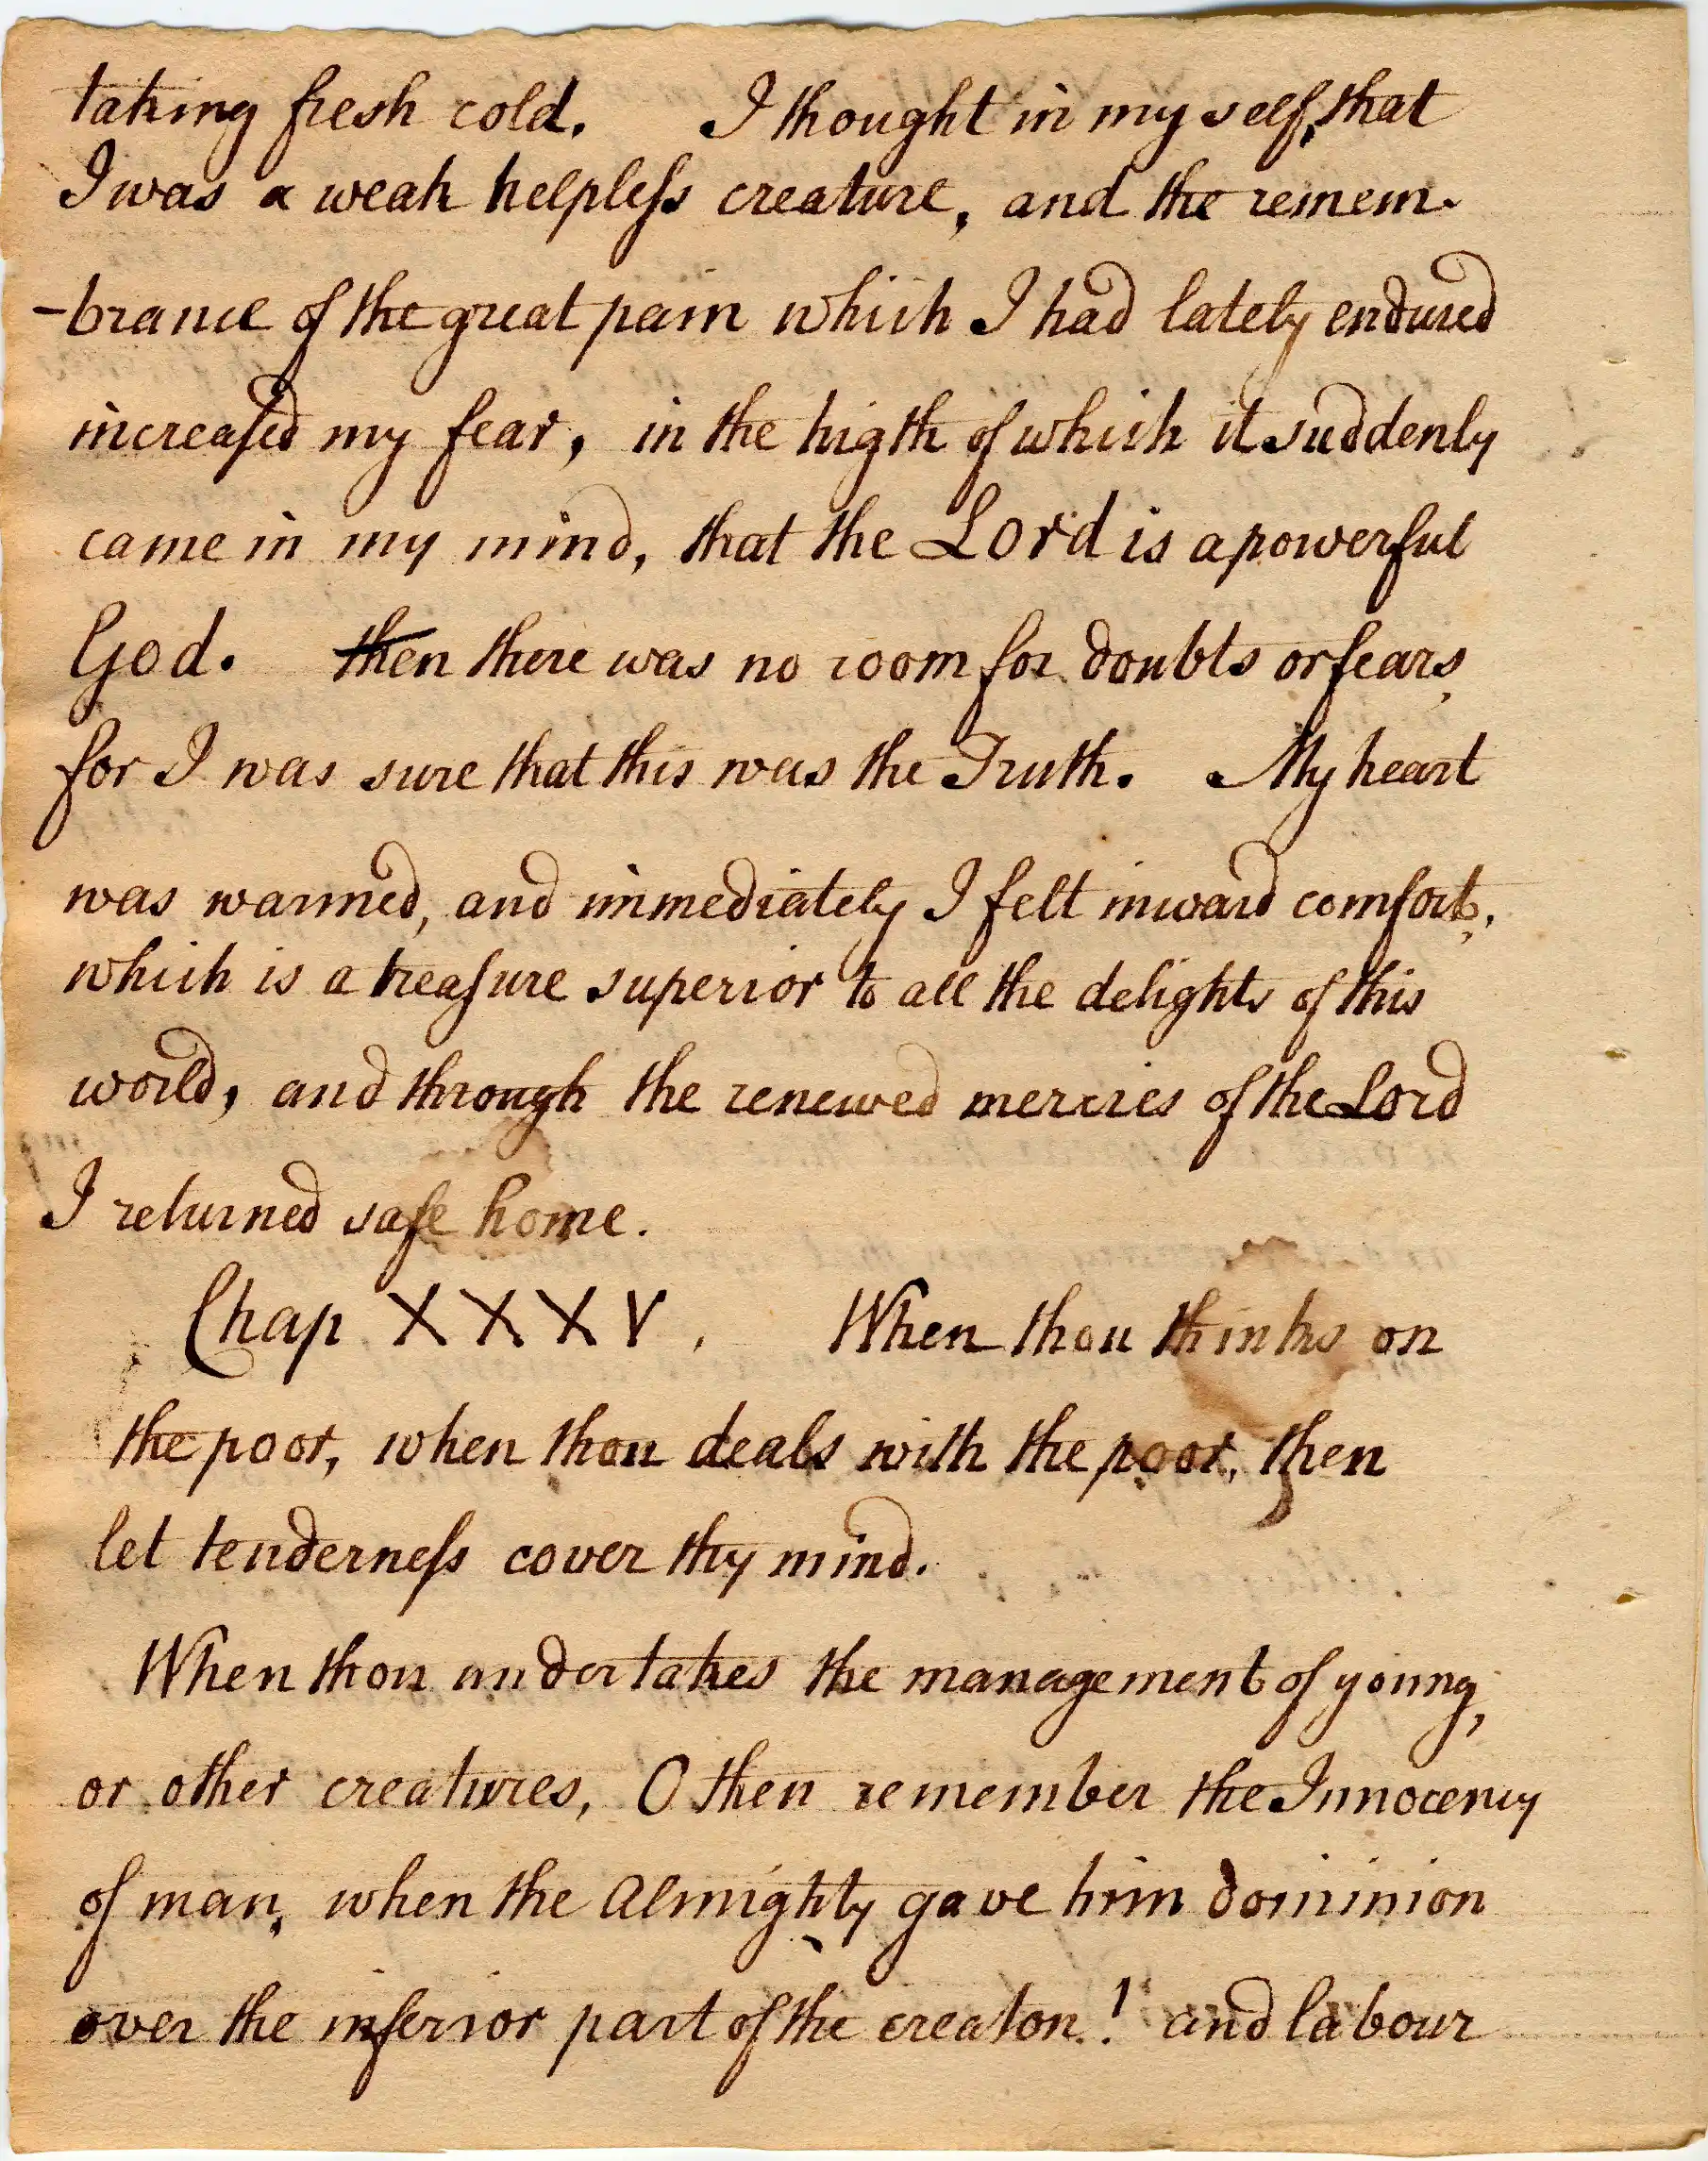 taking fresh cold. I thought in my self, that
I was a weak helpleſs creature, and the remem-
-brance of the great pain which I had lately endured
increaſed my fear, in the higth of which it suddenly
came in my mind, that the Lord is a powerful
God. then there was no room for doubts or fears,
for I was sure that this was the Truth. My heart
was warmed, and immediately I felt inward comfort,
which is a treaſure superior to all the delights of this
world, and through the renewed mercies of the Lord
I returned safe home.
Chap XXXV. When thou thinks on
the poor, when thou deals with the poor, then
let tenderneſs cover thy mind.
When thou undertakes the management of young,
or other creatures, O then remember the Innocency
of man, when the Almighty gave him dominion
over the inferior part of the creaton! and labour